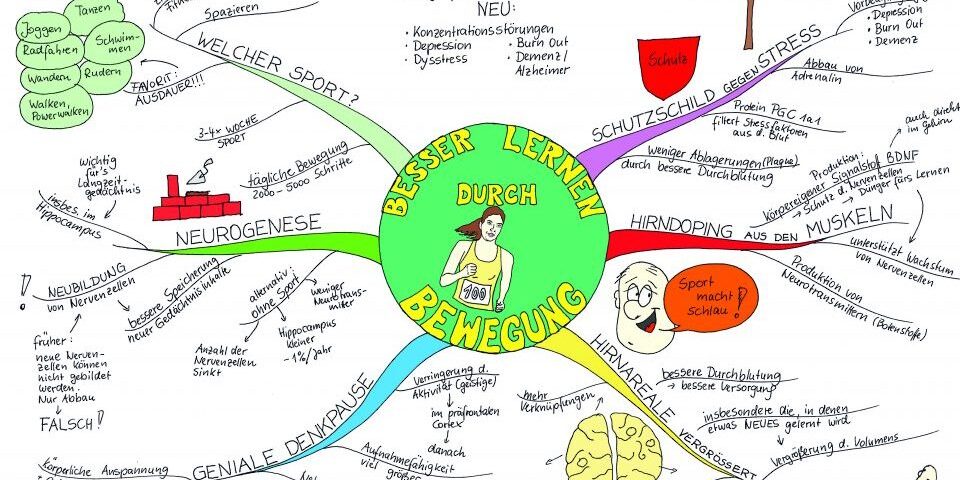 BESSER LERNEN
DURCH
BEWEGUNG
100
WELCHER SPORT?
Spazieren
Joggen
Tanzen
Radfahren
Schwim-
men
Wandern
Rudern
Walken,
Powerwalken
FAVORIT:
AUSDAUER!!!
3-4x WOCHE
SPORT
tägliche Bewegung
2000 - 5000 Schritte
NEU:
· Konzentrationsstörungen
· Depression
· Dysstress
· Burn Out
· Demenz/
Alzheimer
SCHUTZSCHILD GEGEN STRESS
Schutz
· Depression
· Burn Out
· Demenz
Abbau von
Adrenalin
Protein PGC 1a1
filtert Stressfaktoren
aus d. Blut
weniger Ablagerungen (Plaque)
durch bessere Durchblutung
HIRNDOPING AUS DEN MUSKELN
Produktion:
körpereigener Signalstoff BDNF
→ auch direkt
im Gehirn
→ Schutz d. Nervenzellen
→ Dünger fürs Lernen
unterstützt Wachstum
von Nervenzellen
Produktion von
Neurotransmittern (Botenstoffe)
Sport
macht
schlau!
HIRNAREALE VERGRÖSSERT
bessere Durchblutung
→ bessere Versorgung
mehr
Verknüpfungen
insbesondere die, in denen
etwas NEUES gelernt wird
Vergrößerung d. Volumens
GENIALE DENKPAUSE
Verringerung d.
Aktivität (geistige)
im präfrontalen
Cortex
danach
Aufnahmefähigkeit
viel größer
körperliche Anspannung
NEUROGENESE
wichtig
für's
Langzeit-
gedächtnis
insbes. im
Hippocampus
NEUBILDUNG
von Nervenzellen
!
früher:
neue Nerven-
zellen können
nicht gebildet
werden.
Nur Abbau
FALSCH!
bessere Speicherung
neuer Gedächtnisinhalte
alternativ:
ohne Sport
weniger
Neurotrans-
mitter
Hippocampus
kleiner
-1%/Jahr
Anzahl der
Nervenzellen
sinkt